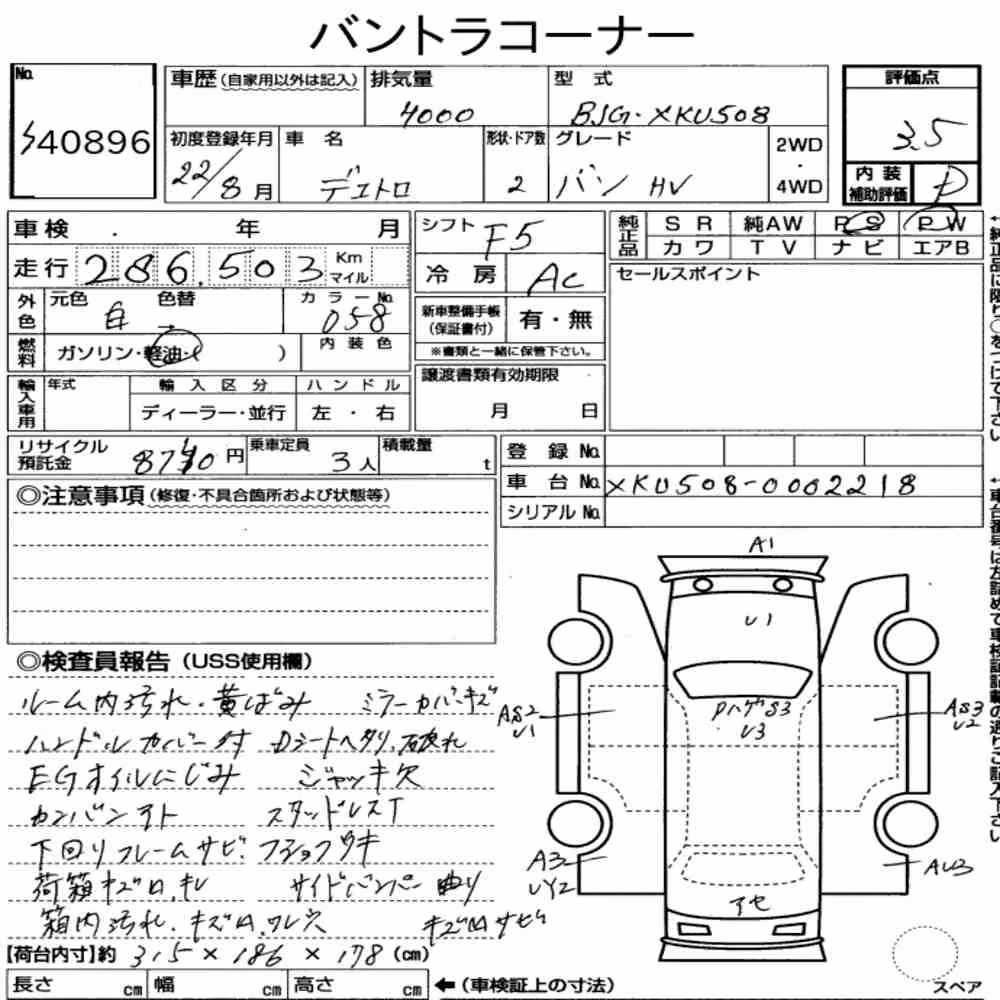 バントラコーナー
No. 40896
車歴(自家用以外は記入) 排気量 4000 型式 BJG-XKU508 評価点 3.5
初度登録年月 22/8月 車名 デュトロ 形状・ドア数 2 グレード バン HV 2WD・4WD 内装補助評価 D
車検 . 年 月 シフト F5 純正品 SR 純AW PS PW
カワ TV ナビ エアB
走行 286,503 Km マイル 冷房 AC セールスポイント
外色 元色 白 色替 カラーNo. 058 新車整備手帳(保証書付) 有・無
燃料 ガソリン・軽油・( ) 内装色 ※書類と一緒に保管下さい。
輸入車用 年式 輸入区分 ハンドル 譲渡書類有効期限
ディーラー・並行 左・右 月 日
リサイクル預託金 8710円 乗車定員 3人 積載量 t 登録No.
車台No. XKU508-0002218
シリアルNo.
◎注意事項(修復・不具合箇所および状態等)
A1
U1
◎検査員報告(USS使用欄)
ルーム内汚れ・黄ばみ ミラーカバーキズ
AS2 U1 PハゲS3 U3 AS3 U2
ハンドルカバー付 Dシートヘタリ、破れ
EGオイルにじみ ジャッキ欠
カンバンアト スタッドレスT
下回りフレームサビ・フショクウキ
A3 UY2 AU3
荷箱キズ凹、キレ サイドバンパー曲り
アセ
箱内汚れ、キズ凹、ワレ穴 キズ凹サビ
【荷台内寸】約 3.15 × 186 × 178 (cm)
長さ cm 幅 cm 高さ cm ←(車検証上の寸法)
スペア